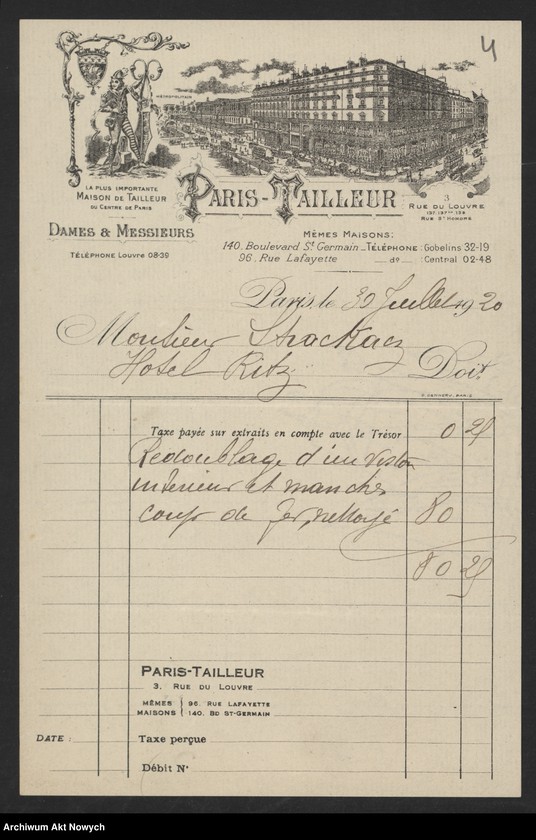 4
METROPOLITAIN
LA PLUS IMPORTANTE
MAISON DE TAILLEUR
DU CENTRE DE PARIS
PARIS-TAILLEUR
3
RUE DU LOUVRE
RUE ST HONORÉ
DAMES & MESSIEURS
TÉLÉPHONE Louvre 08-39
MÊMES MAISONS:
140, Boulevard St Germain _ TÉLÉPHONE: Gobelins 32-19
96, Rue Lafayette __ do __ : Central 02-48
Paris, le 30 Juillet 1920
Monsieur Strackacz
Hotel Ritz Doit
Taxe payée sur extraits en compte avec le Trésor 0 25
Redoublage d'un veston
interieur et manches
coup de fer, nettoyé 80
80 25
PARIS-TAILLEUR
3. RUE DU LOUVRE
MÊMES MAISONS { 96. RUE LAFAYETTE
140. BD ST-GERMAIN
DATE :
Taxe perçue
Débit No
Archiwum Akt Nowych